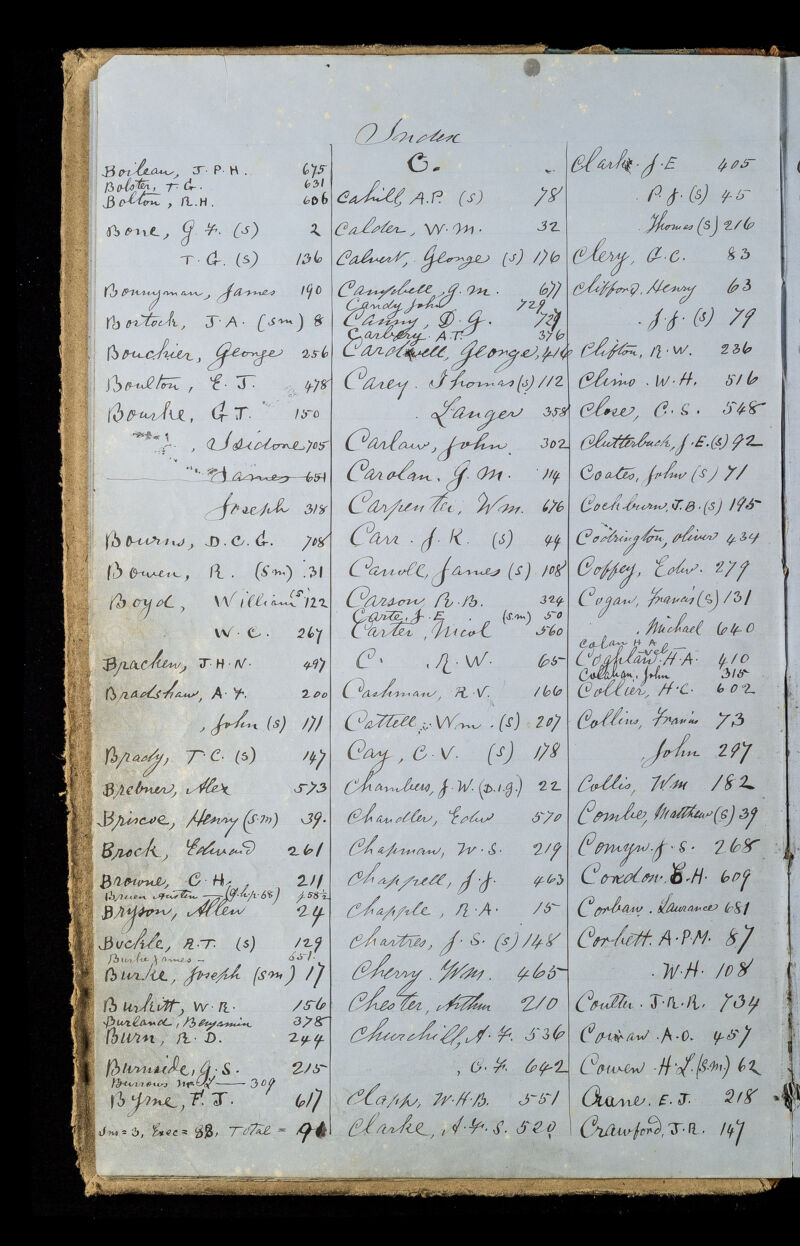 Index
Boileau, J.P.H. 675
Bolster, T.G. 631
Bolton, R.H. 606
Bone, G.F. (S) 2
T.G. (S) 136
Bonnyman, James 190
Bostock, J.A. (Sm) 8
Bouchier, George 256
Boulton, E.J. 478
Bourke, G.J. 150
, Isidone 705
James 651
Joseph 318
Bourns, D.C.G. 708
Bowen, R. (Sm) 31
Boyd, William (S) 122
W.C. 267
Bracken, J.H.N. 497
Bradshaw, A.F. 200
, John (S) 171
Brady, T.C. (S) 147
Brebner, Alex 573
Briscoe, Henry (Sm) 39.
Brock, Edward 261
Browne, C.H. 211
Bruen Austin
Bryson, Allen 24
Buckle, R.T. (S) 129
Burke James - 651.
Burke, Joseph (Sm) 17
Burkitt, W.R. 156
Burland, Benjamin 378
Burn, R.D. 244
Burnside, G.S. 215
Burrows 309
Byrne, F.J. 617
Total =
C.
Cahill, A.P. (S) 78
Calder, W.M. 32
Calvert, George (S) 176
Campbell, G.M. 677
Candy John 729
Canny, D.G. 729
Carbery A.T. 376
Cardwell, George, 416
Carey. Thomas (S) 112
Langer 358
Carlaw, John 302
Carolan. G.M. 114
Carpenter, Wm. 676
Carr. J.K. (S) 44
Carroll, James (S) 108
Carson, R.B. 324
Carte, J.E (Sm) 50
Carter, Nicol 560
C. , R.W. 65
Cashman, R.V. 166
Cattell, Wm. (S) 207
Cay, C.V. (S) 178
Chambers, J.W. (D.I.G.) 22
Chandler, Edw 570
Chapman, W.S. 219
Chappell, J.J. 463
Chapple, R.A. 15
Chartres, J.S. (S) 148
Cherry. Wm. 465
Chester, Arthur 210
Churchill, A.F. 536
, C.F. 642
Clapp, W.H.B. 551
Clarke, A.F.S. 520
Clarke. J.E 405
P.J. (S) 45
Thomas (S) 216
Clery, G.C. 83
Clifford. Henry 63
. J.J. (S) 79
Clifton, R.W. 236
Climo. W.H. 516
Close, C.S. 548
Clutterbuck, J.E. (S) 92
Coates, John (S) 71
Cockburn, J.B. (S) 195
Codrington, Oliver 434
Coffey, Edw. 279
Cogan, Francis (S) 131
, Michael 640
Colan H A
Coghlan. H.A. 410
Colahan, John 315
Collier, H.C. 602
Collins, Francis 73
, John 297
Collis, Wm 182
Combe, Matthew (S) 39
Comyn. J.S. 268
Condon. E.H. 609
Corban. Laurance 681
Corbett. A.P.M. 87
. W.H. 108
Coutts. J.R.R. 734
Cowan. A.O. 457
Cowen. H.L. (S.M.) 62
Crane. E.J. 218
Crawford, J.R. 147